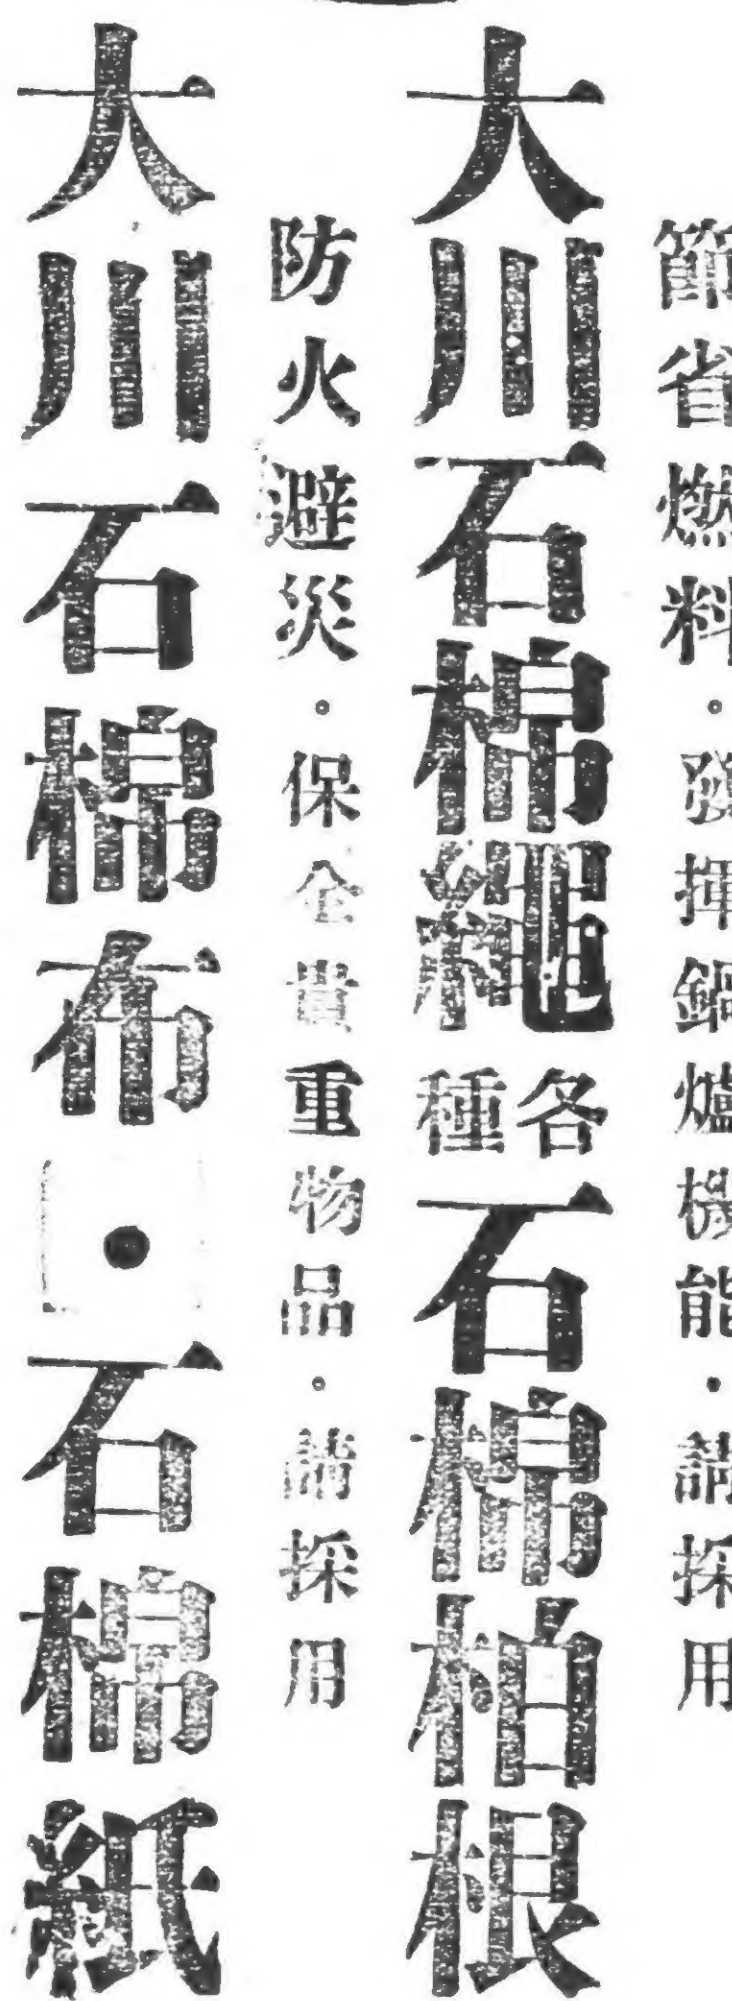 節省燃料。發揮鍋爐機能。請採用
大川石棉繩各種石棉柏根
防火避災。保全貴重物品。請採用
大川石棉布•石棉紙